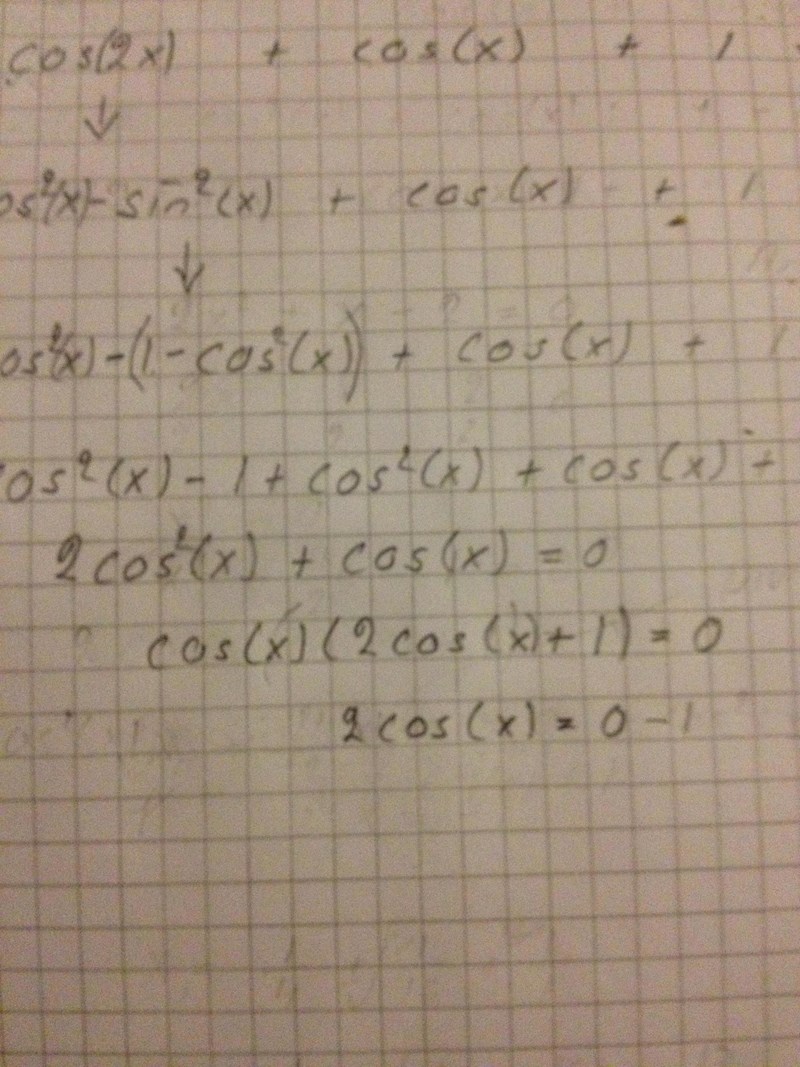 cos(2x) + cos(x) + 1
↓
os²(x)-sin²(x) + cos(x) + 1
↓
os²(x)-(1-cos²(x)) + cos(x) + 1
cos²(x)-1+cos²(x) + cos(x) +
2cos²(x) + cos(x) = 0
cos(x)(2cos(x)+1) = 0
2cos(x) = 0-1